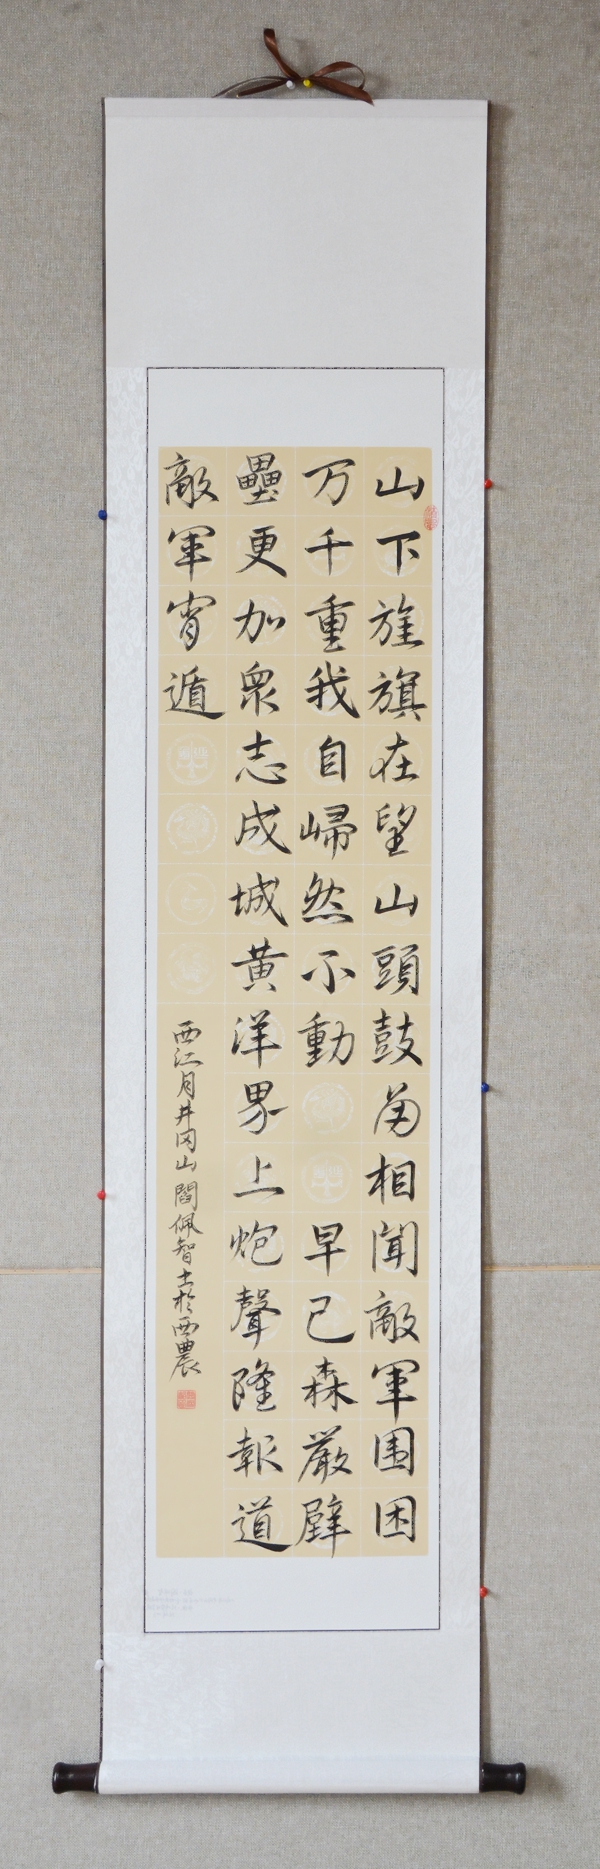 山下旌旗在望山頭鼓角相聞敵軍围困
万千重我自巋然不動 早已森厳壁
壘更加眾志成城黄洋界上炮聲隆報道
敵軍宵遁
西江月井冈山 閻佩智书於西農